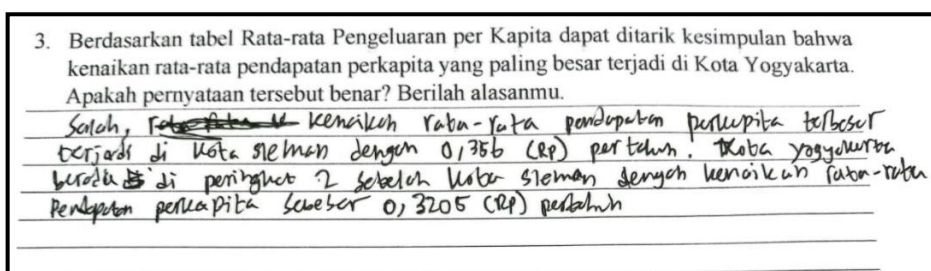 3. Berdasarkan tabel Rata-rata Pengeluaran per Kapita dapat ditarik kesimpulan bahwa
kenaikan rata-rata pendapatan perkapita yang paling besar terjadi di Kota Yogyakarta.
Apakah pernyataan tersebut benar? Berilah alasanmu.
Salah, kenaikan rata-rata pendapatan perkapita terbesar
terjadi di kota sleman dengan 0,356 (RP) pertahun. Kota yogyakarta
berada di peringkat 2 setelah kota sleman dengan kenaikan rata-rata
Pendapatan perkapita sebesar 0,3205 (RP) pertahun